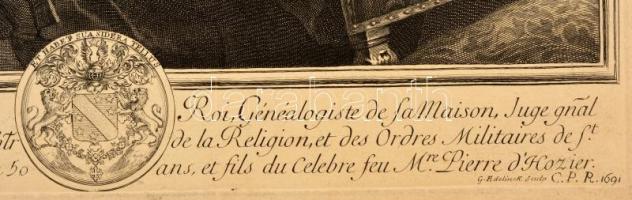 ET HABET SUA SIDERA TELLUS
Roi, Généalogiste de sa Maison, Juge gñal
tr de la Religion, et des Ordres Militaires de S.t
50 ans, et fils du Celebre feu M.re Pierre d'Hozier.
G. Edelinck Sculp C. P. R. 1691
darabanth